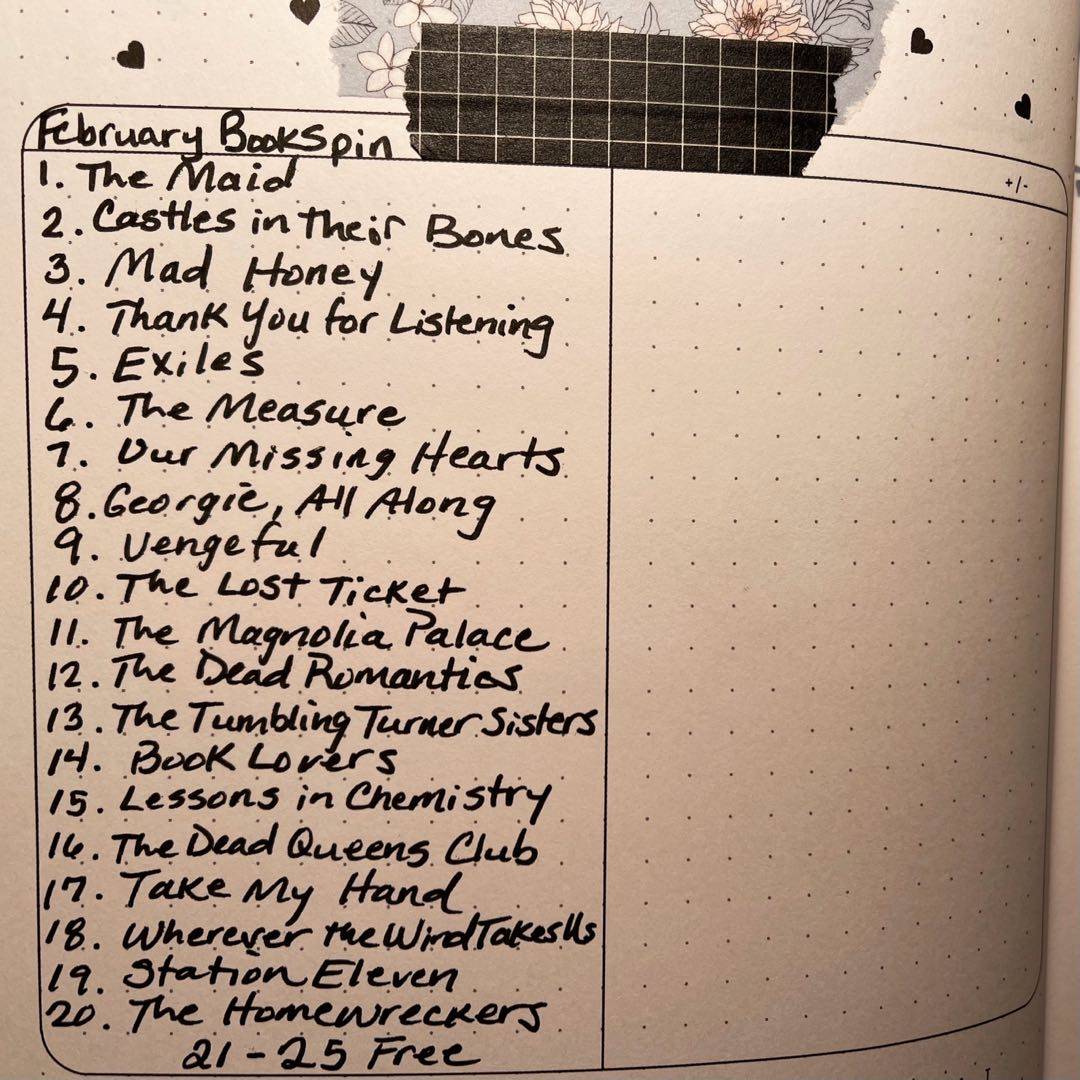 February BookSpin
+/-
1. The Maid
2. Castles in Their Bones
3. Mad Honey
4. Thank You for Listening
5. Exiles
6. The Measure
7. Our Missing Hearts
8. Georgie, All Along
9. Vengeful
10. The Lost Ticket
11. The Magnolia Palace
12. The Dead Romantics
13. The Tumbling Turner Sisters
14. Book Lovers
15. Lessons in Chemistry
16. The Dead Queens Club
17. Take My Hand
18. Wherever the Wind Takes Us
19. Station Eleven
20. The Homewreckers
21-25 Free